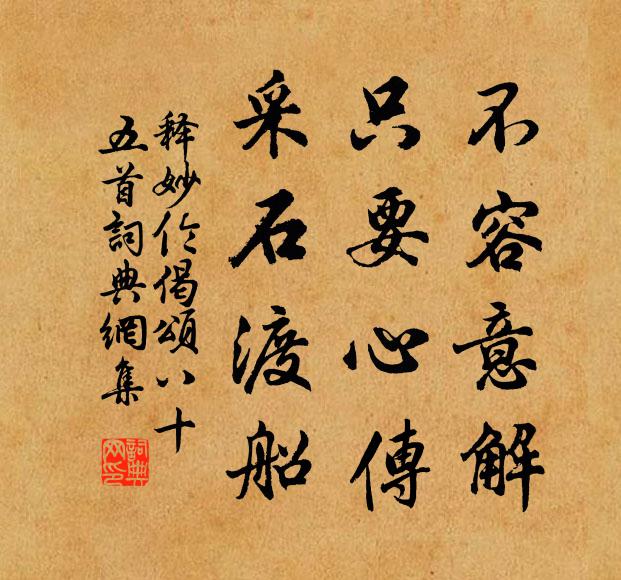 不容意解
只要心傳
采石渡船
释妙伦偈頌八十
五首詞典網集
詞典网印